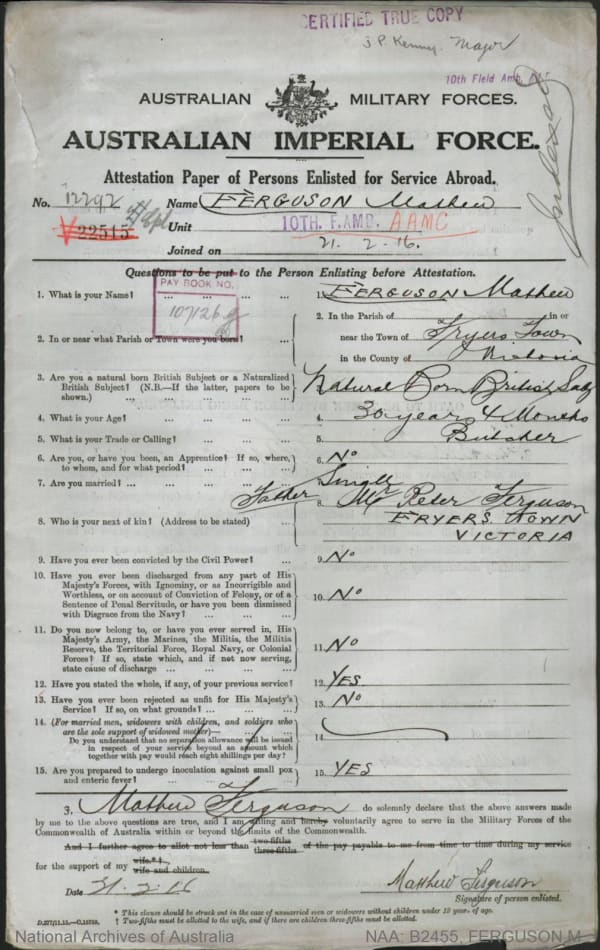 CERTIFIED TRUE COPY
J P Kenny. Major
10th Field Amb.
AUSTRALIAN MILITARY FORCES.
AUSTRALIAN IMPERIAL FORCE.
Attestation Paper of Persons Enlisted for Service Abroad.
No. 12292 Name FERGUSON Mathew
V 22515 Unit 10TH. F. AMB. AAMC
Joined on 21. 2 -16.
Questions to be put to the Person Enlisting before Attestation.
PAY BOOK NO.
107126
1. What is your Name? ... ... ... ... 1. FERGUSON Mathew
2. In the Parish of in or
2. In or near what Parish or Town were you born? ... near the Town of Fryers Town
in the County of Victoria
3. Are you a natural born British Subject or a Naturalized
British Subject? (N.B.—If the latter, papers to be
shown.) ... ... ... ... Natural Born British Subj
4. What is your Age? ... ... ... ... 4. 30 years 4 Months
5. What is your Trade or Calling? ... ... ... 5. Butcher
6. Are you, or have you been, an Apprentice? If so, where,
to whom, and for what period? ... ... ... 6. No
7. Are you married? ... ... ... ... Single
Father 8. Mr Peter Ferguson
8. Who is your next of kin? (Address to be stated) ... FRYERS TOWN
VICTORIA
9. Have you ever been convicted by the Civil Power? ... 9. No
10. Have you ever been discharged from any part of His
Majesty's Forces, with Ignominy, or as Incorrigible and
Worthless, or on account of Conviction of Felony, or of a
Sentence of Penal Servitude, or have you been dismissed
with Disgrace from the Navy? ... ... ... 10. No
11. Do you now belong to, or have you ever served in, His
Majesty's Army, the Marines, the Militia, the Militia
Reserve, the Territorial Force, Royal Navy, or Colonial
Forces? If so, state which, and if not now serving,
state cause of discharge ... ... ... 11. No
12. Have you stated the whole, if any, of your previous service? 12. YES
13. Have you ever been rejected as unfit for His Majesty's
Service? If so, on what grounds? ... ... 13. No
14. (For married men, widowers with children, and soldiers who
are the sole support of widowed mother)—
Do you understand that no separation allowance will be issued
in respect of your service beyond an amount which
together with pay would reach eight shillings per day? 14.
15. Are you prepared to undergo inoculation against small pox
and enteric fever? ... ... ... ... 15. YES
3. Mathew Ferguson do solemnly declare that the above answers made
by me to the above questions are true, and I am willing and hereby voluntarily agree to serve in the Military Forces of the
Commonwealth of Australia within or beyond the limits of the Commonwealth.
And I further agree to allot not less than two-fifths three-fifths of the pay payable to me from time to time during my service
for the support of my wife.*† wife and children.
Date 21. 2. 16 Matthew Ferguson
Signature of person enlisted.
* This clause should be struck out in the case of unmarried men or widowers without children under 18 years of age.
† Two-fifths must be allotted to the wife, and if there are children three-fifths must be allotted.
National Archives of Australia NAA: B2455, FERGUSON M